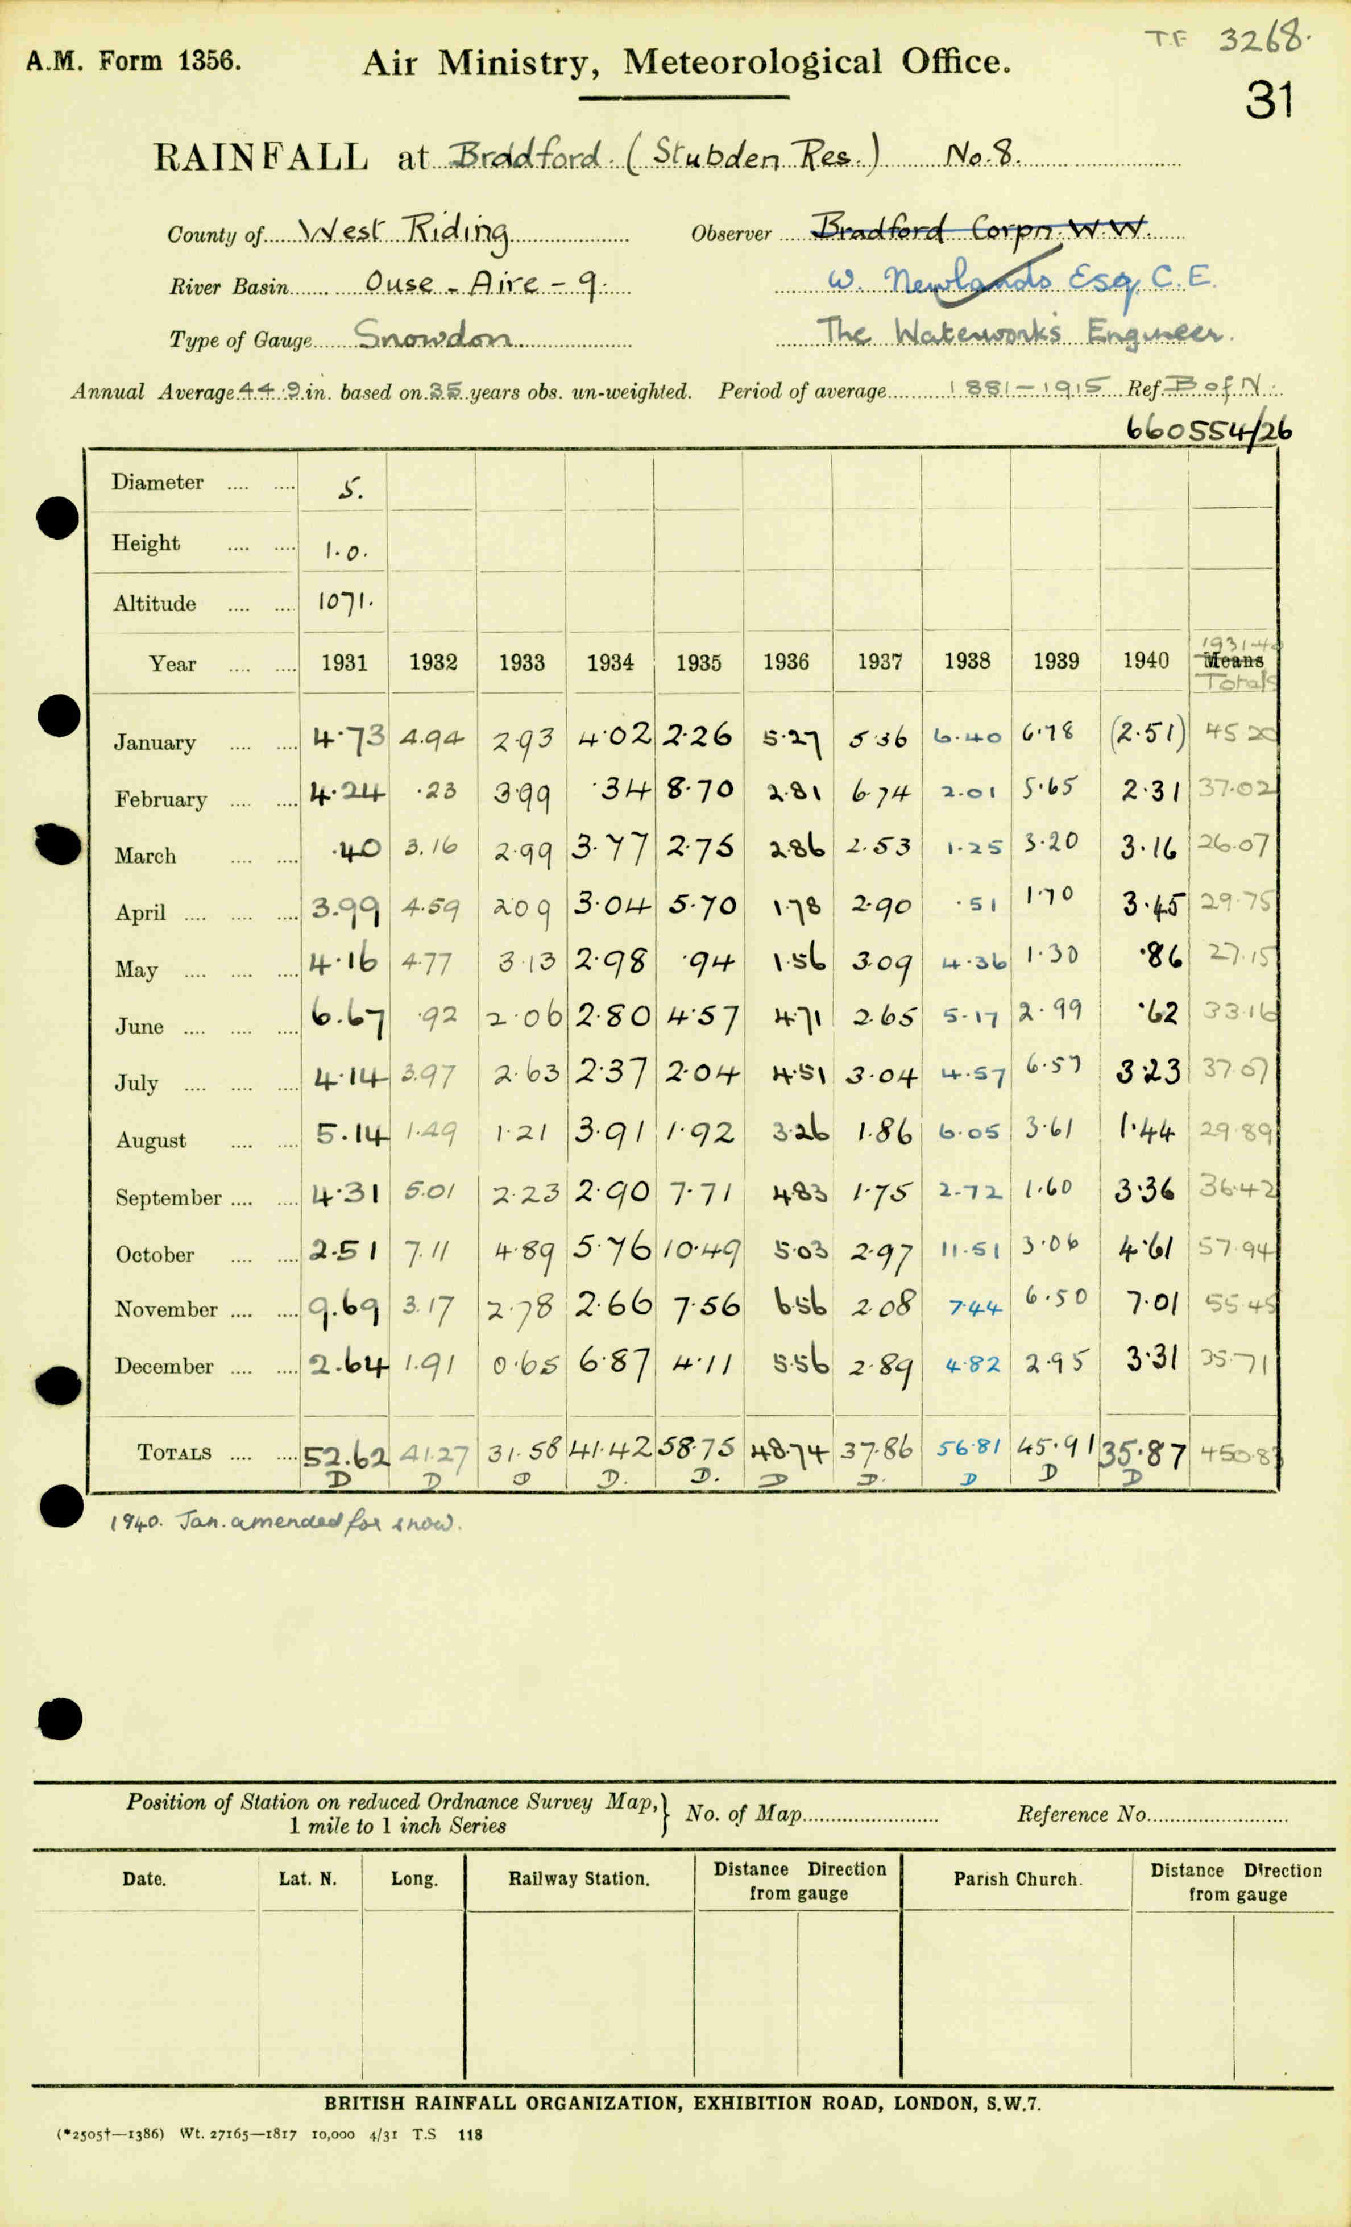 TF 3268.
A.M. Form 1356. Air Ministry, Meteorological Office.
31
RAINFALL at Bradford. (Stubden Res.) No. 8.
County of West Riding Observer Bradford Corpn. W.W.
River Basin Ouse - Aire - 9. W. Newlands Esq, C.E.
Type of Gauge Snowdon The Waterworks Engineer.
Annual Average 44.9 in. based on 35 years obs. un-weighted. Period of average 1881-1915 Ref. B of N.
660554/26
Diameter .... .... 5.
Height .... .... 1.0.
Altitude .... .... 1071.
1931-40
Year .... .... 1931 1932 1933 1934 1935 1936 1937 1938 1939 1940 Means
Totals
January .... .... 4.73 4.94 2.93 4.02 2.26 5.27 5.36 6.40 6.78 (2.51) 45.20
February .... .... 4.24 .23 3.99 .34 8.70 2.81 6.74 2.01 5.65 2.31 37.02
March .... .... .40 3.16 2.99 3.77 2.75 2.86 2.53 1.25 3.20 3.16 26.07
April .... .... .... 3.99 4.59 2.09 3.04 5.70 1.78 2.90 .51 1.70 3.45 29.75
May .... .... .... 4.16 4.77 3.13 2.98 .94 1.56 3.09 4.36 1.30 .86 27.15
June .... .... .... 6.67 .92 2.06 2.80 4.57 4.71 2.65 5.17 2.99 .62 33.16
July .... .... .... 4.14 3.97 2.63 2.37 2.04 4.51 3.04 4.57 6.57 3.23 37.07
August .... .... 5.14 1.49 1.21 3.91 1.92 3.26 1.86 6.05 3.61 1.44 29.89
September .... .... 4.31 5.01 2.23 2.90 7.71 4.83 1.75 2.72 1.60 3.36 36.42
October .... .... 2.51 7.11 4.89 5.76 10.49 5.03 2.97 11.51 3.06 4.61 57.94
November .... .... 9.69 3.17 2.78 2.66 7.56 6.56 2.08 7.44 6.50 7.01 55.45
December .... .... 2.64 1.91 0.65 6.87 4.11 5.56 2.89 4.82 2.95 3.31 35.71
TOTALS .... .... 52.62 41.27 31.58 41.42 58.75 48.74 37.86 56.81 45.91 35.87 450.83
D D D D. D. D D. D D D
1940. Jan. amended for snow.
Position of Station on reduced Ordnance Survey Map,} No. of Map Reference No.
1 mile to 1 inch Series
Date. Lat. N. Long. Railway Station. Distance Direction from gauge Parish Church. Distance Direction from gauge
BRITISH RAINFALL ORGANIZATION, EXHIBITION ROAD, LONDON, S.W.7.
(*2505†—1386) Wt. 27165—1817 10,000 4/31 T.S 118